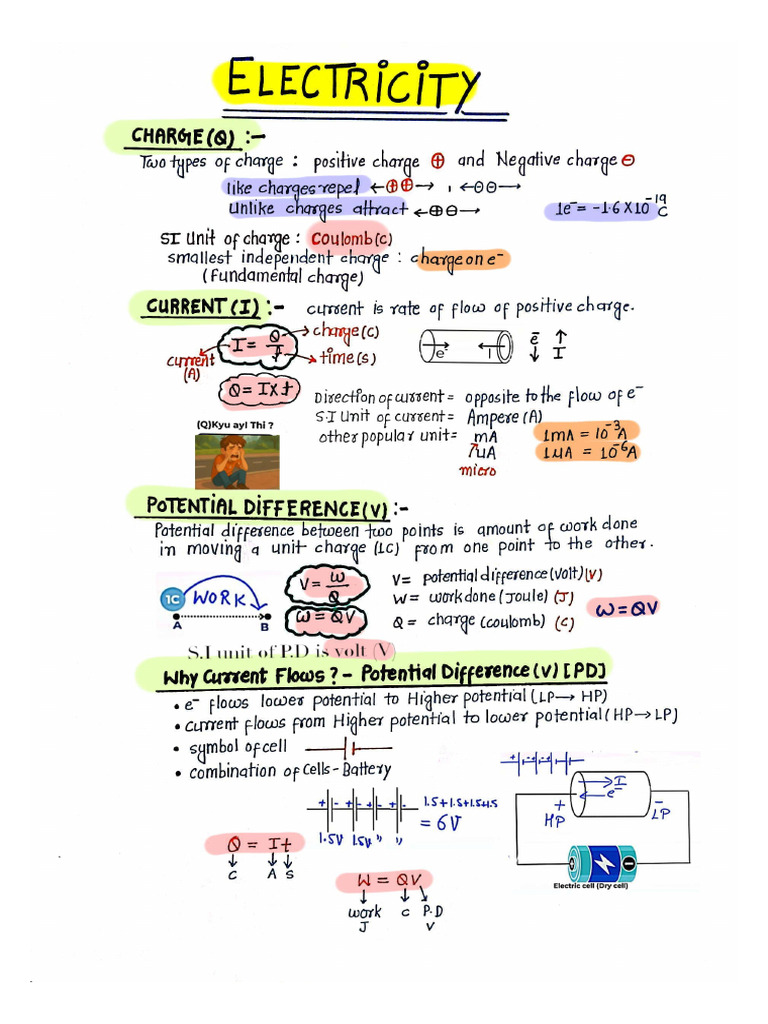 ELECTRICITY
CHARGE(Q) :-
Two types of charge : positive charge ⊕ and Negative charge ⊖
like charges repel ←⊕⊕→ , ←⊖⊖→
Unlike charges attract ←⊕⊖→ 1e⁻ = -1.6 X10⁻¹⁹ C
SI Unit of charge : Coulomb(c)
smallest independent charge : charge on e⁻
(fundamental charge)
CURRENT(I) :- current is rate of flow of positive charge.
I = Q/t → charge(C) → time(s)
current (A)
e⁻ I e⁻ ↓ ↑ I
Q = I×t
Direction of current = opposite to the flow of e⁻
S.I Unit of current = Ampere (A)
other popular unit = mA 1mA = 10⁻³A
μA 1μA = 10⁻⁶A
micro
(Q)Kyu ayI Thi ?
POTENTIAL DIFFERENCE(V) :-
Potential difference between two points is amount of work done
in moving a unit charge (1C) from one point to the other.
1C WORK
A B
V = W/Q
W = QV
V= potential difference(volt)(V)
W = work done (Joule) (J)
Q = charge (coulomb) (C)
W=QV
S.I unit of P.D is volt (V)
Why Current Flows ? - Potential Difference (V) [PD]
• e⁻ flows lower potential to Higher potential (LP→ HP)
• current flows from Higher potential to lower potential (HP→LP)
• symbol of cell
• combination of Cells - Battery
+ - + - + - + -
1.5V 1.5V " "
1.5+1.5+1.5+1.5
= 6V
+ - + - + -
I
e⁻
+ -
HP LP
Electric cell (Dry cell)
Q = It
C A S
W = QV
work C P.D
J V